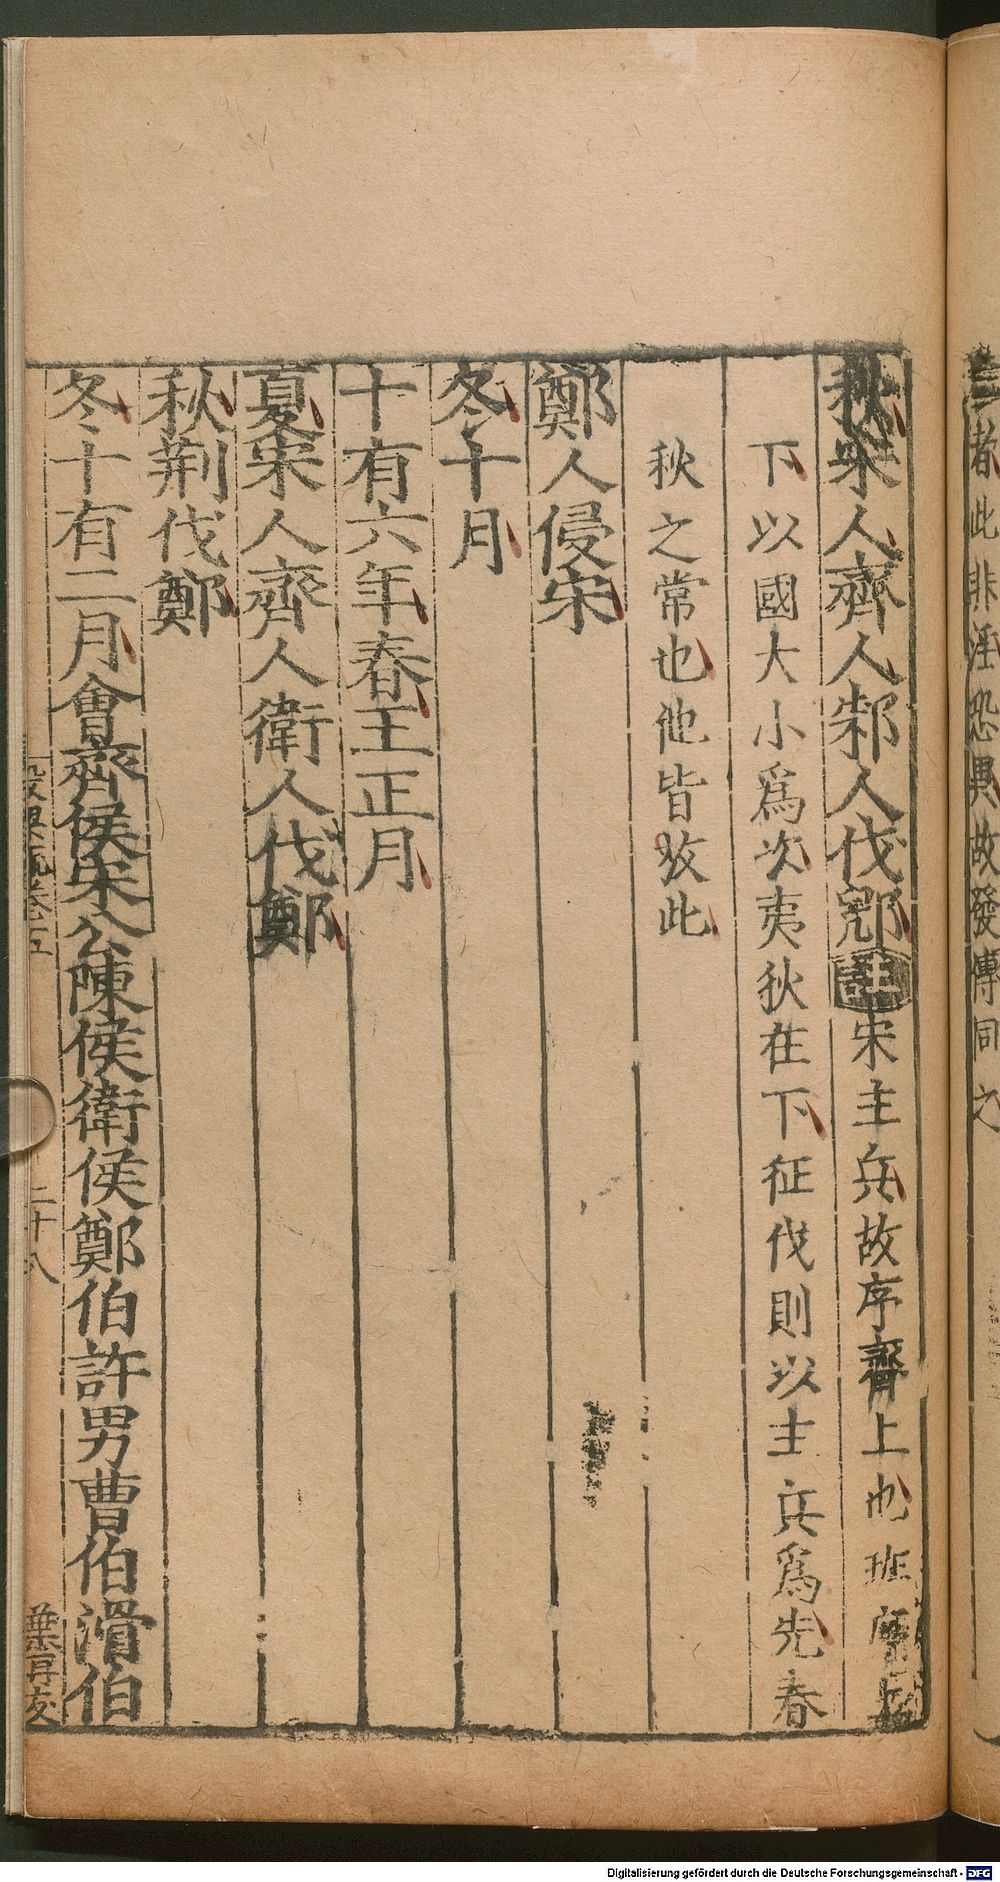 者此非淫恐異故發傳同之
秋宋人齊人邾人伐郳註宋主兵故序齊上也班序上
下以國大小爲次夷狄在下征伐則以主兵爲先春
秋之常也他皆放此
鄭人侵宋
冬十月
十有六年春王正月
夏宋人齊人衛人伐鄭
秋荆伐鄭
冬十有二月會齊侯宋公陳侯衛侯鄭伯許男曹伯滑伯
卷五
二十八
葉再友
Digitalisierung gefördert durch die Deutsche Forschungsgemeinschaft - DFG